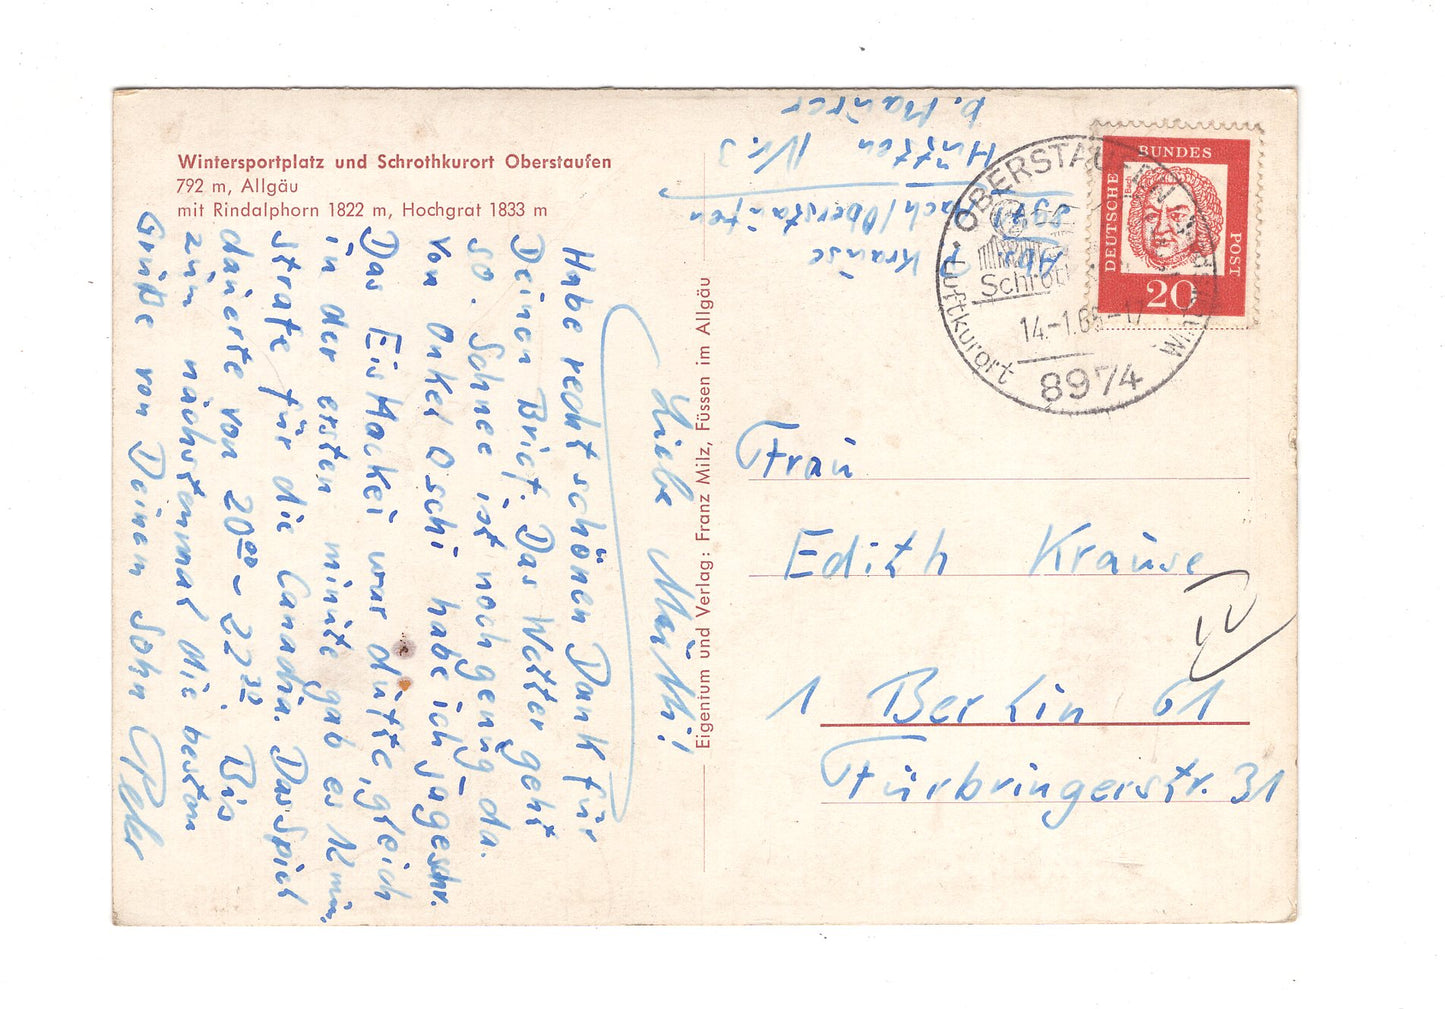 Wintersportplatz und Schrothkurort Oberstaufen
792 m, Allgäu
mit Rindalphorn 1822 m, Hochgrat 1833 m
Liebe Mutti!
Habe recht schönen Dank für
Deinen Brief. Das Wetter geht
so. Schnee ist noch genug da.
Von Onkel Oschi habe ich
Das Eis Hockei war dufte, gleich
in der ersten minute gab es 12 min.
strafe für die Canadia. Das Spiel
dauerte von 20⁰⁰ - 22³⁰. Bis
zum nächstenmal die besten
Grüße von Deinen Sohn Peter
Eigentum und Verlag: Franz Milz, Füssen im Allgäu
Abs.
Krause
8971
Aach/Oberstaufen
Hütten Nr. 3
b. Maurer
OBERSTAUFEN
Luftkurort
Schrot
14.-1.65-17
8974
DEUTSCHE
BUNDES
POST
Bach
20
Frau
Edith Krause
1 Berlin 61
Fürbringerstr. 31